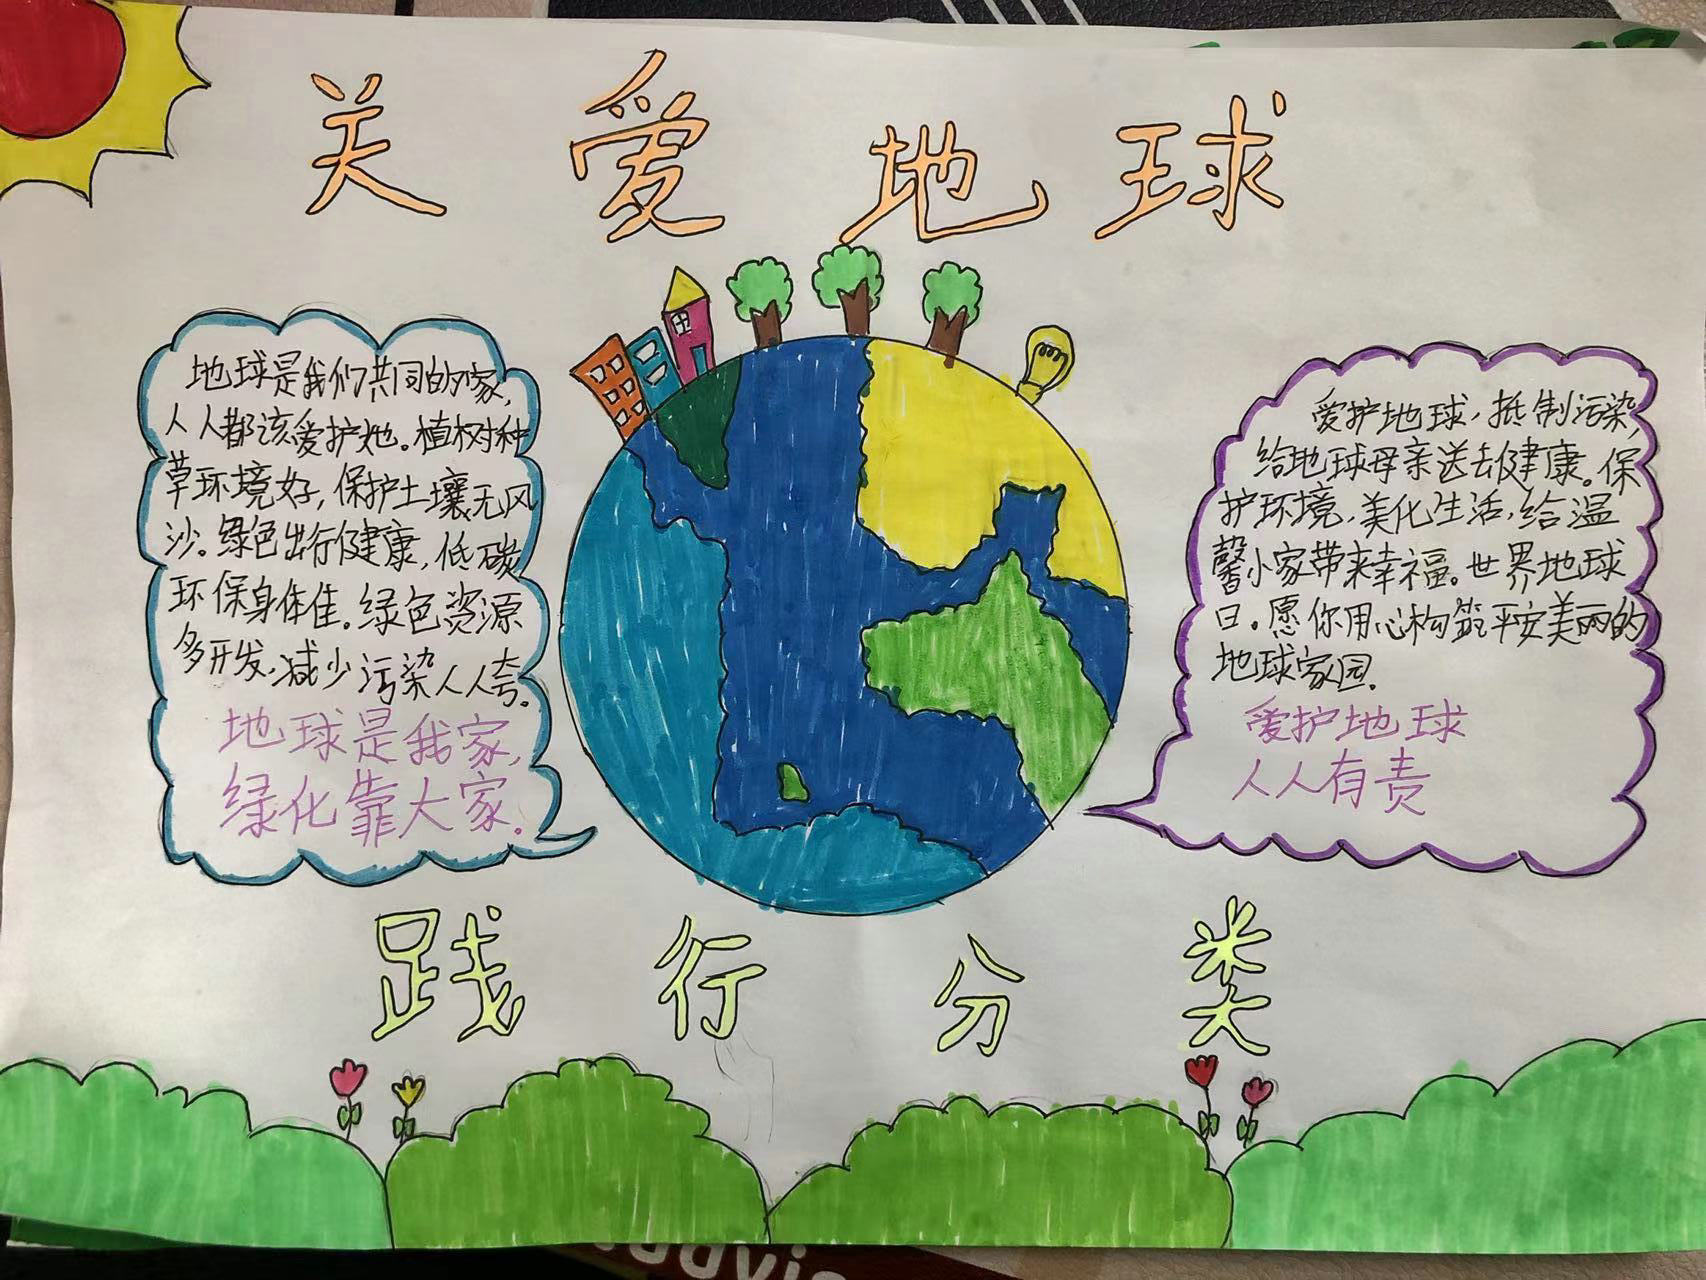 关爱地球
地球是我们共同的家,
人人都该爱护她。植树种
草环境好,保护土壤无风
沙。绿色出行健康,低碳
环保身体佳。绿色资源
多开发,减少污染人人夸。
地球是我家,
绿化靠大家.
爱护地球,抵制污染,
给地球母亲送去健康。保
护环境,美化生活,给温
馨小家带来幸福。世界地球
日。愿你用心构筑平安美丽的
地球家园.
爱护地球
人人有责
践行分类